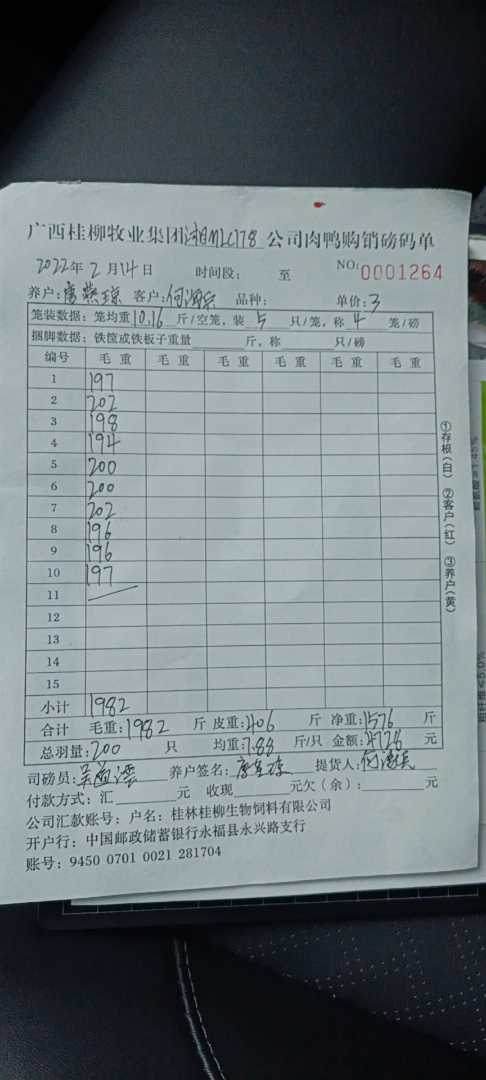 广西桂柳牧业集团湘MLC178公司肉鸭购销磅码单
2022年2月14日 时间段: 至 NO:0001264
养户: 客户: 品种: 单价:3
笼装数据: 笼均重10.16斤/空笼, 装5只/笼, 称4笼/磅
捆脚数据: 铁筐或铁板子重量 斤, 称 只/磅
编号 毛重 毛重 毛重 毛重 毛重 毛重
1 197
2 202
3 198
4 194
5 200
6 200
7 202
8 196
9 196
10 197
11
12
13
14
15
小计 1982
合计 毛重:1982斤 皮重:406斤 净重:1576斤
总羽量:200只 均重:7.88斤/只 金额:4728元
司磅员: 养户签名: 提货人:
付款方式: 汇 元 收现 元欠(余): 元
公司汇款账号: 户名: 桂林桂柳生物饲料有限公司
开户行: 中国邮政储蓄银行永福县永兴路支行
账号: 9450 0701 0021 281704
①存根(白) ②客户(红) ③养户(黄)